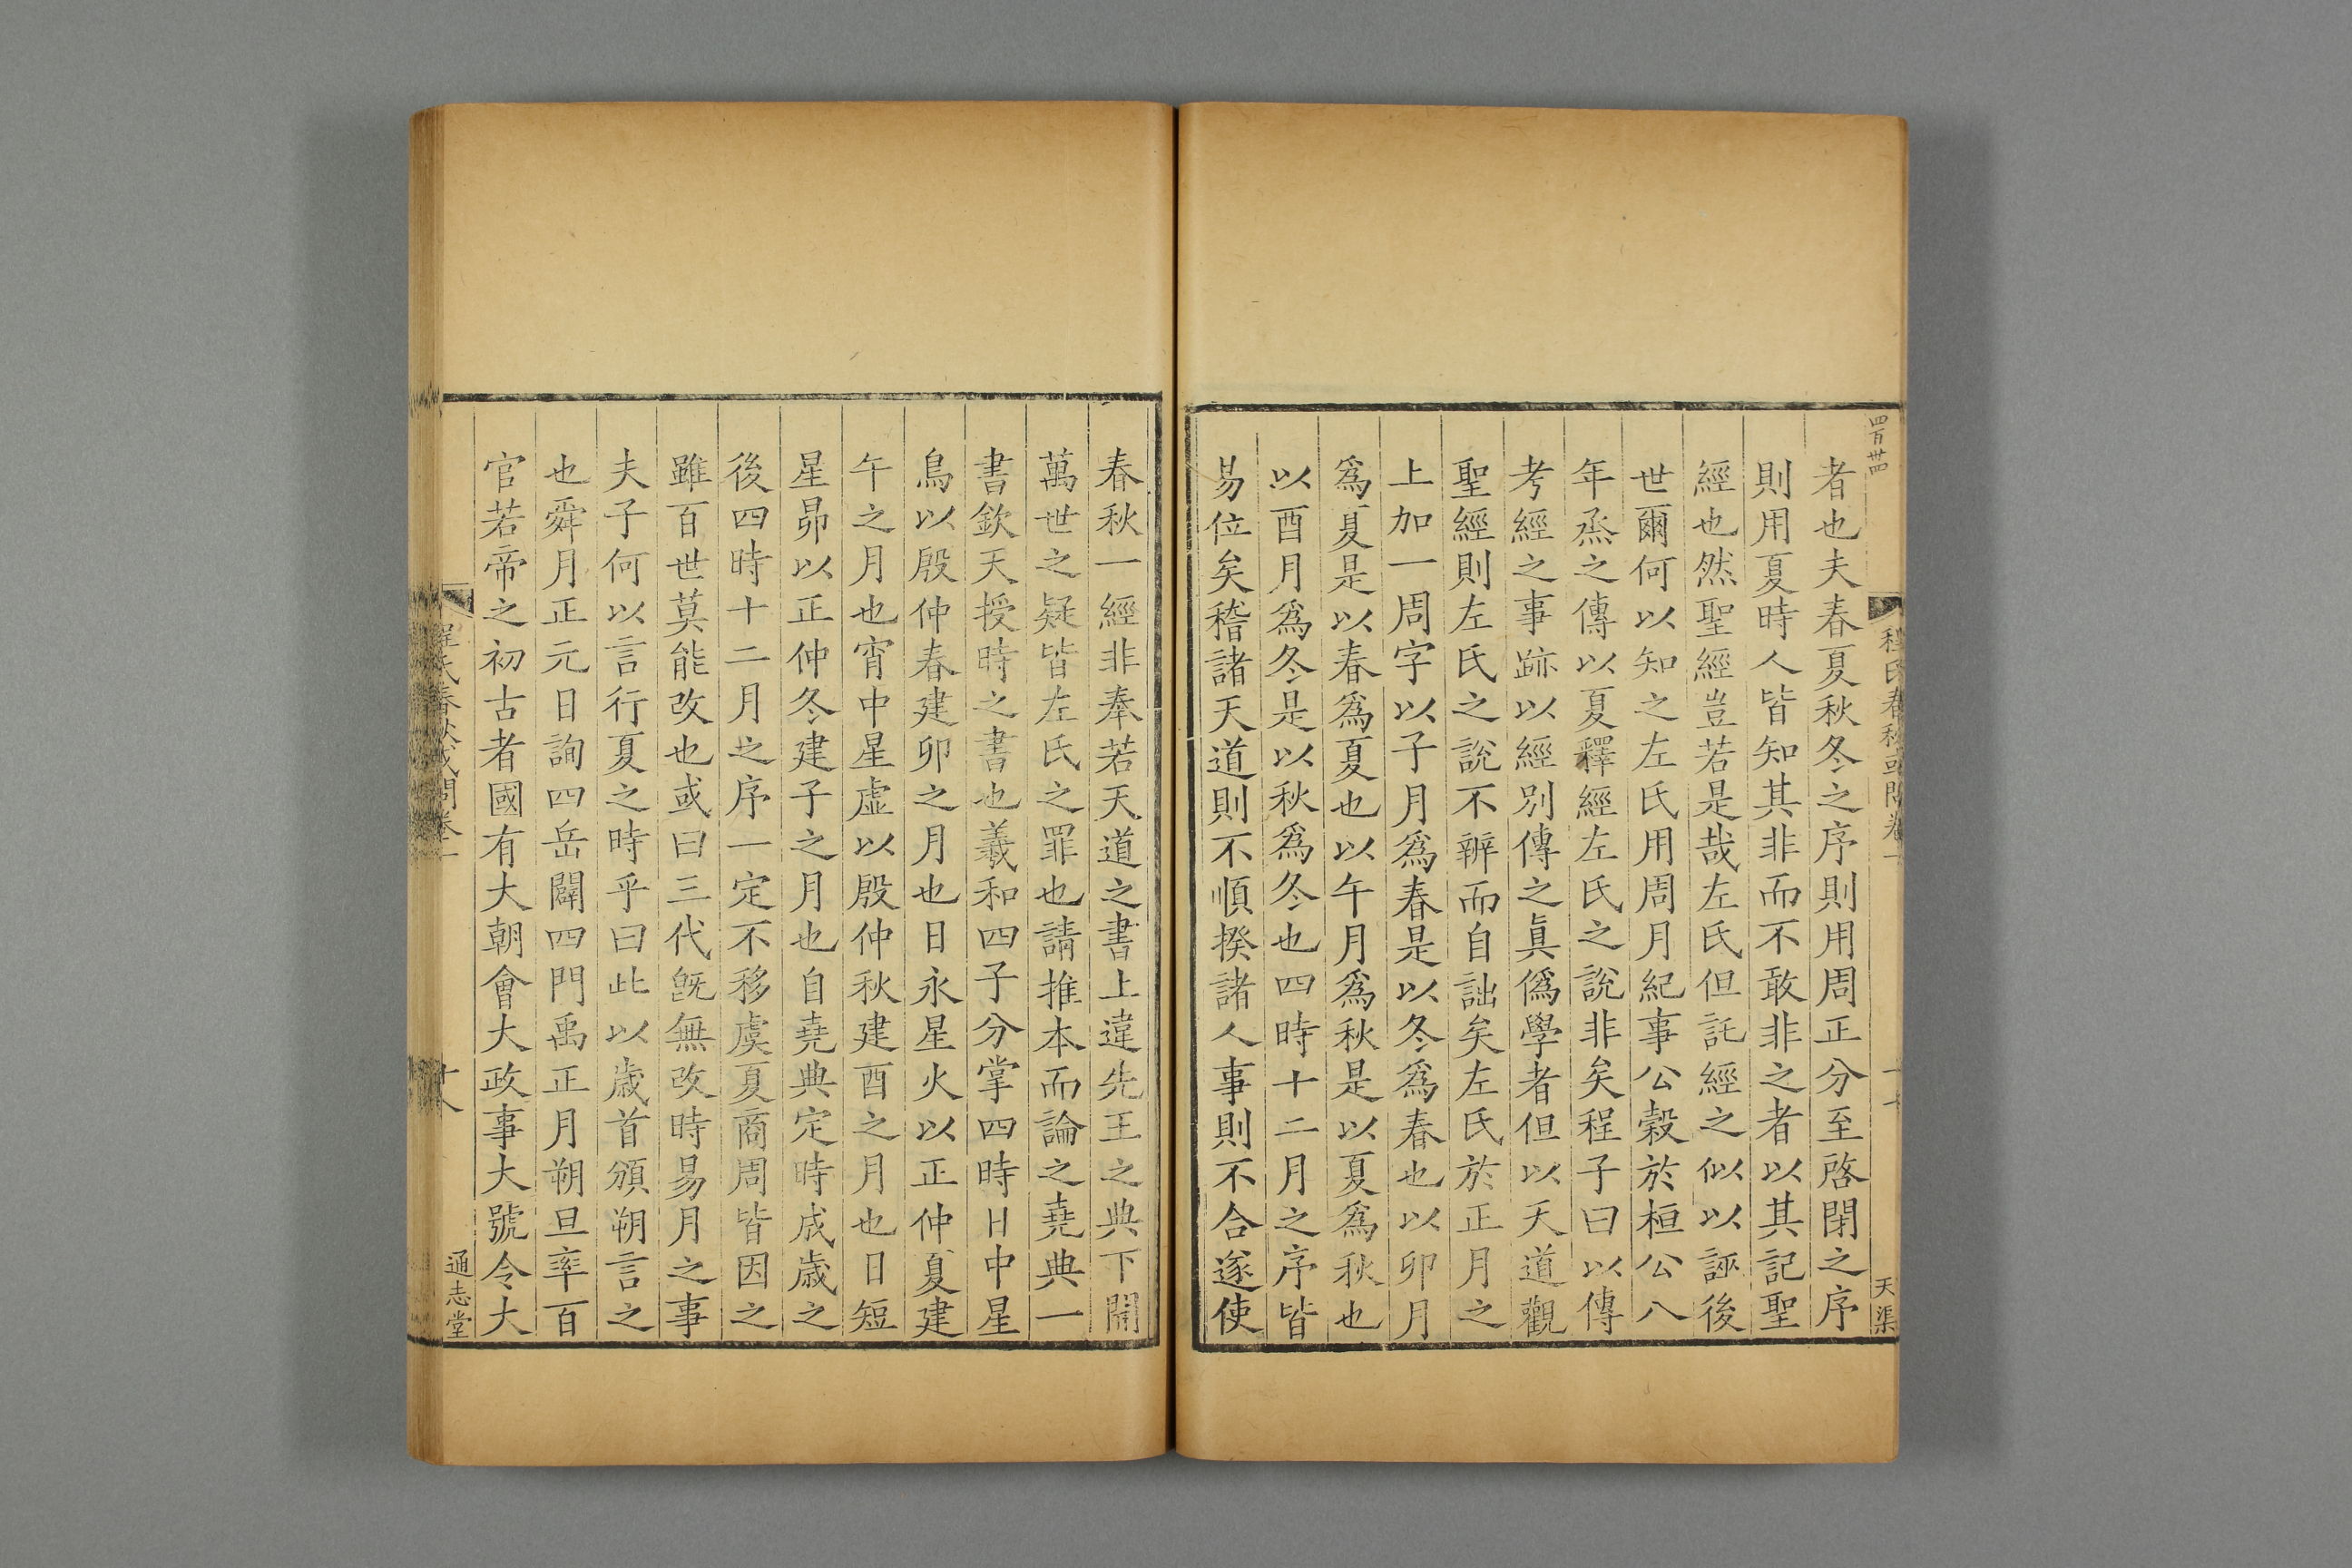 四百卅四
程氏春秋或問卷一
十七
天渠
者也夫春夏秋冬之序則用周正分至啓閉之序
則用夏時人皆知其非而不敢非之者以其記聖
經也然聖經豈若是哉左氏但託經之似以誣後
世爾何以知之左氏用周月紀事公穀於桓公八
年烝之傳以夏釋經左氏之說非矣程子曰以傳
考經之事跡以經別傳之眞僞學者但以天道觀
聖經則左氏之說不辨而自詘矣左氏於正月之
上加一周字以子月爲春是以冬爲春也以卯月
爲夏是以春爲夏也以午月爲秋是以夏爲秋也
以酉月爲冬是以秋爲冬也四時十二月之序皆
易位矣稽諸天道則不順揆諸人事則不合遂使
春秋一經非奉若天道之書上違先王之典下閣
萬世之疑皆左氏之罪也請推本而論之堯典一
書欽天授時之書也羲和四子分掌四時日中星
鳥以殷仲春建卯之月也日永星火以正仲夏建
午之月也宵中星虛以殷仲秋建酉之月也日短
星昴以正仲冬建子之月也自堯典定時成歲之
後四時十二月之序一定不移虞夏商周皆因之
雖百世莫能改也或曰三代旣無改時易月之事
夫子何以言行夏之時乎曰此以歲首頒朔言之
也舜月正元日詢四岳闢四門禹正月朔旦率百
官若帝之初古者國有大朝會大政事大號令大
程氏春秋或問卷一
十八
通志堂